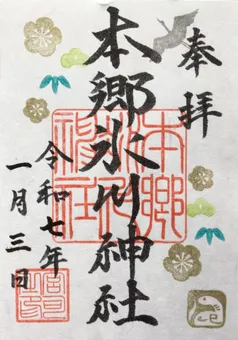 奉拝
本郷氷川神社
本郷氷川神社
令和七年
一月三日